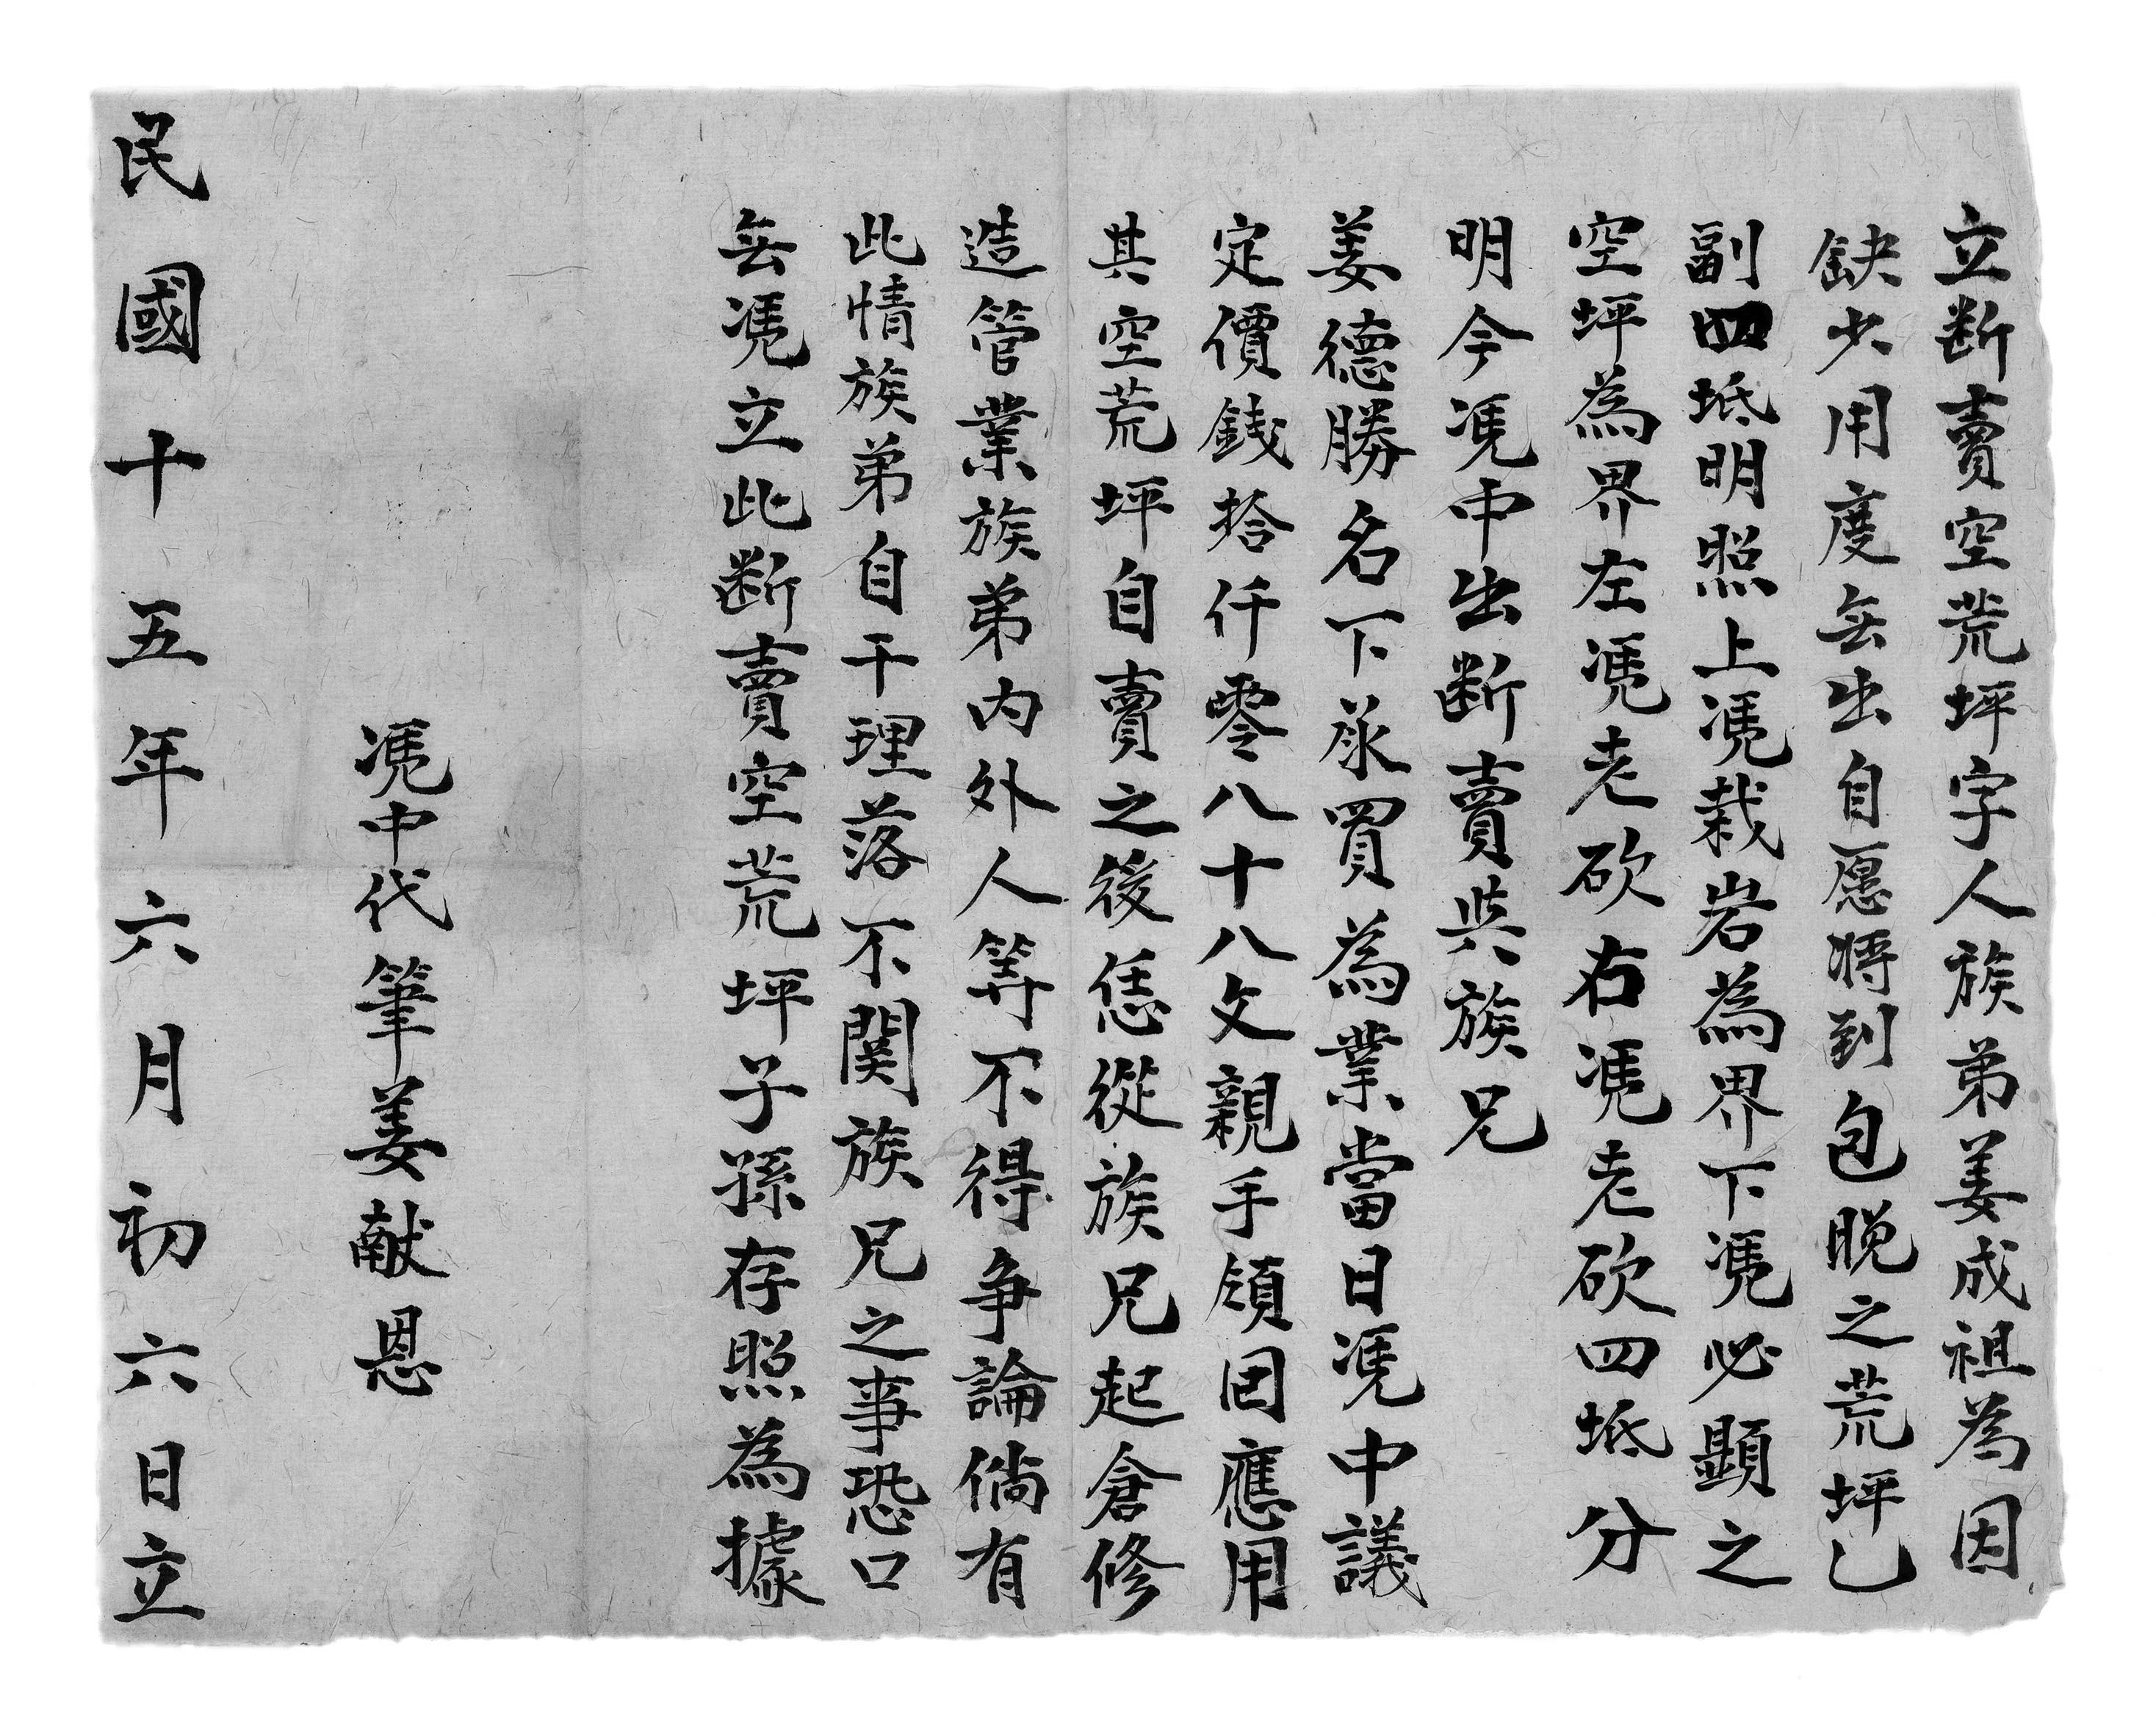 立断賣空荒坪字人族弟姜成祖為因
缺少用度無出自愿將到包晚之荒坪乙
副四坻明照上馮栽岩為界下馮必顕之
空坪為界左馮老砍右馮老砍四坻分
明今馮中出断賣與族兄
姜德勝名下承買為業當日馮中議
定價錢拾仟零八十八文親手領回應用
其空荒坪自賣之後恁從族兄起倉修
造管業族弟内外人等不得争論倘有
此情族弟自干理落不関族兄之事恐口
無馮立此断賣空荒坪子孫存照為據
馮中代筆姜献恩
民國十五年六月初六日立